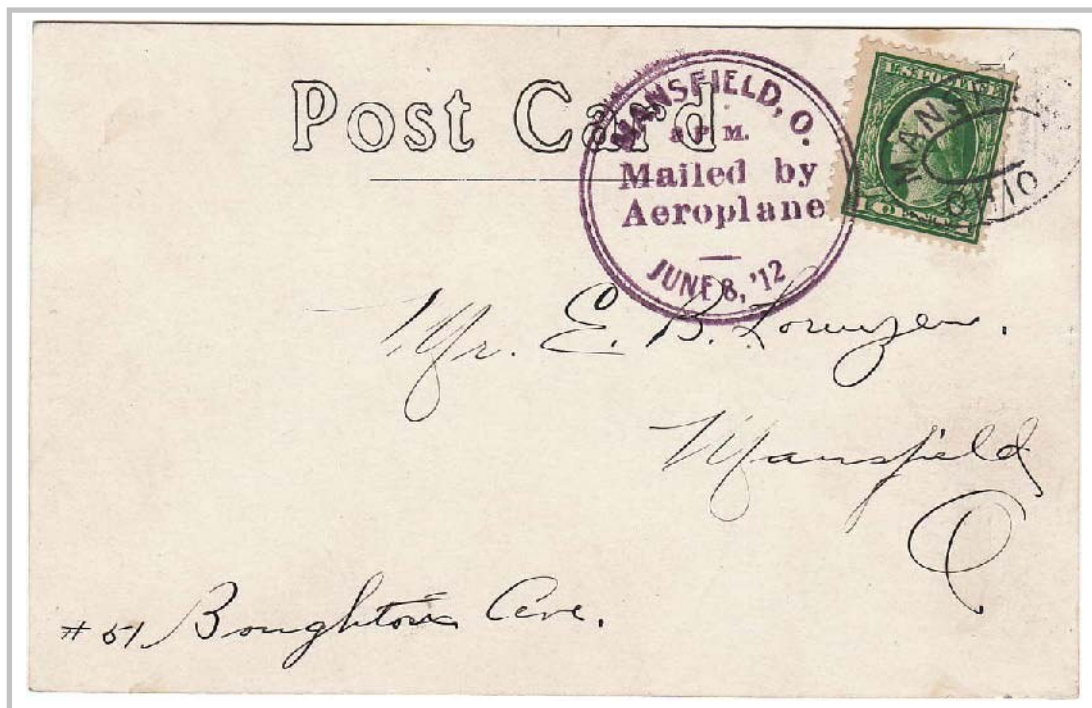 Post Card
MANSFIELD, O.
P. M.
Mailed by
Aeroplane
JUNE 8, '12
U.S. POSTAGE
OHIO
Mr. E. B.
Mansfield
O
# 51 Boughton Ave.